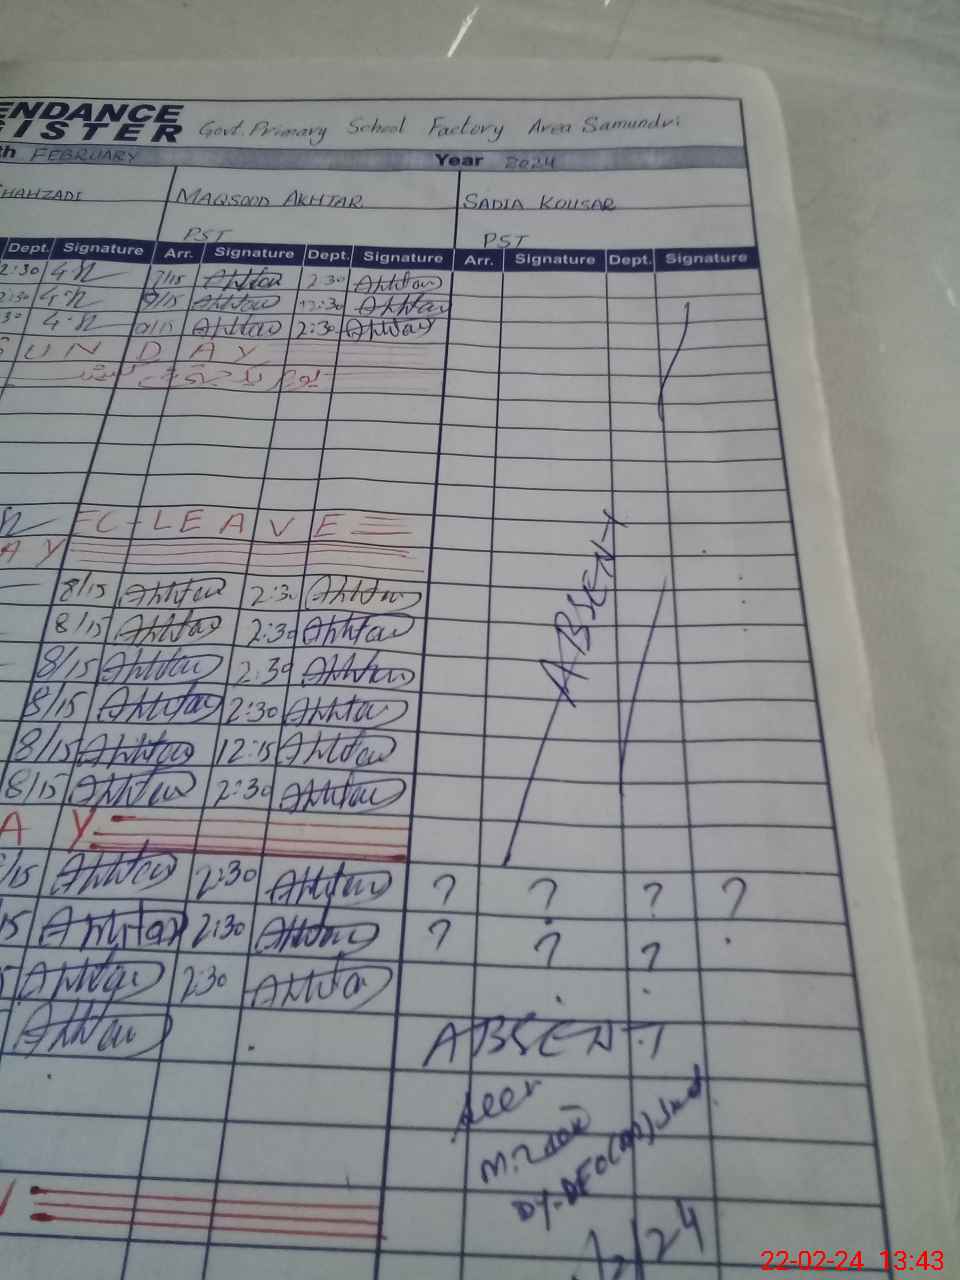 ENDANCE
GISTER Govt. Primary School Factory Area Samundri
th FEBRUARY Year 2024
SHAHZADI MAQSOOD AKHTAR SADIA KOUSAR
PST PST
Dept. Signature Arr. Signature Dept. Signature Arr. Signature Dept. Signature
2:30 7/15 Akhtar 2:30 Akhtar
2:30 Akhtar 2:30 Akhtar
30 Akhtar 2:30 Akhtar
SUNDAY
LEAVE
AY
8/15 Akhtar 2:30 Akhtar
8/15 Akhtar 2:30 Akhtar
ABSENT
8/15 Akhtar 2:30 Akhtar
8/15 Akhtar 2:30 Akhtar
8/15 Akhtar 12:15 Akhtar
8/15 Akhtar 2:30 Akhtar
A Y
/15 Akhtar 2:30 Akhtar ? ? ? ?
15 Akhtar 2:30 Akhtar ? ? ?
5 Akhtar 2:30 Akhtar
Akhtar ABSENT
seen
/24
22-02-24 13:43